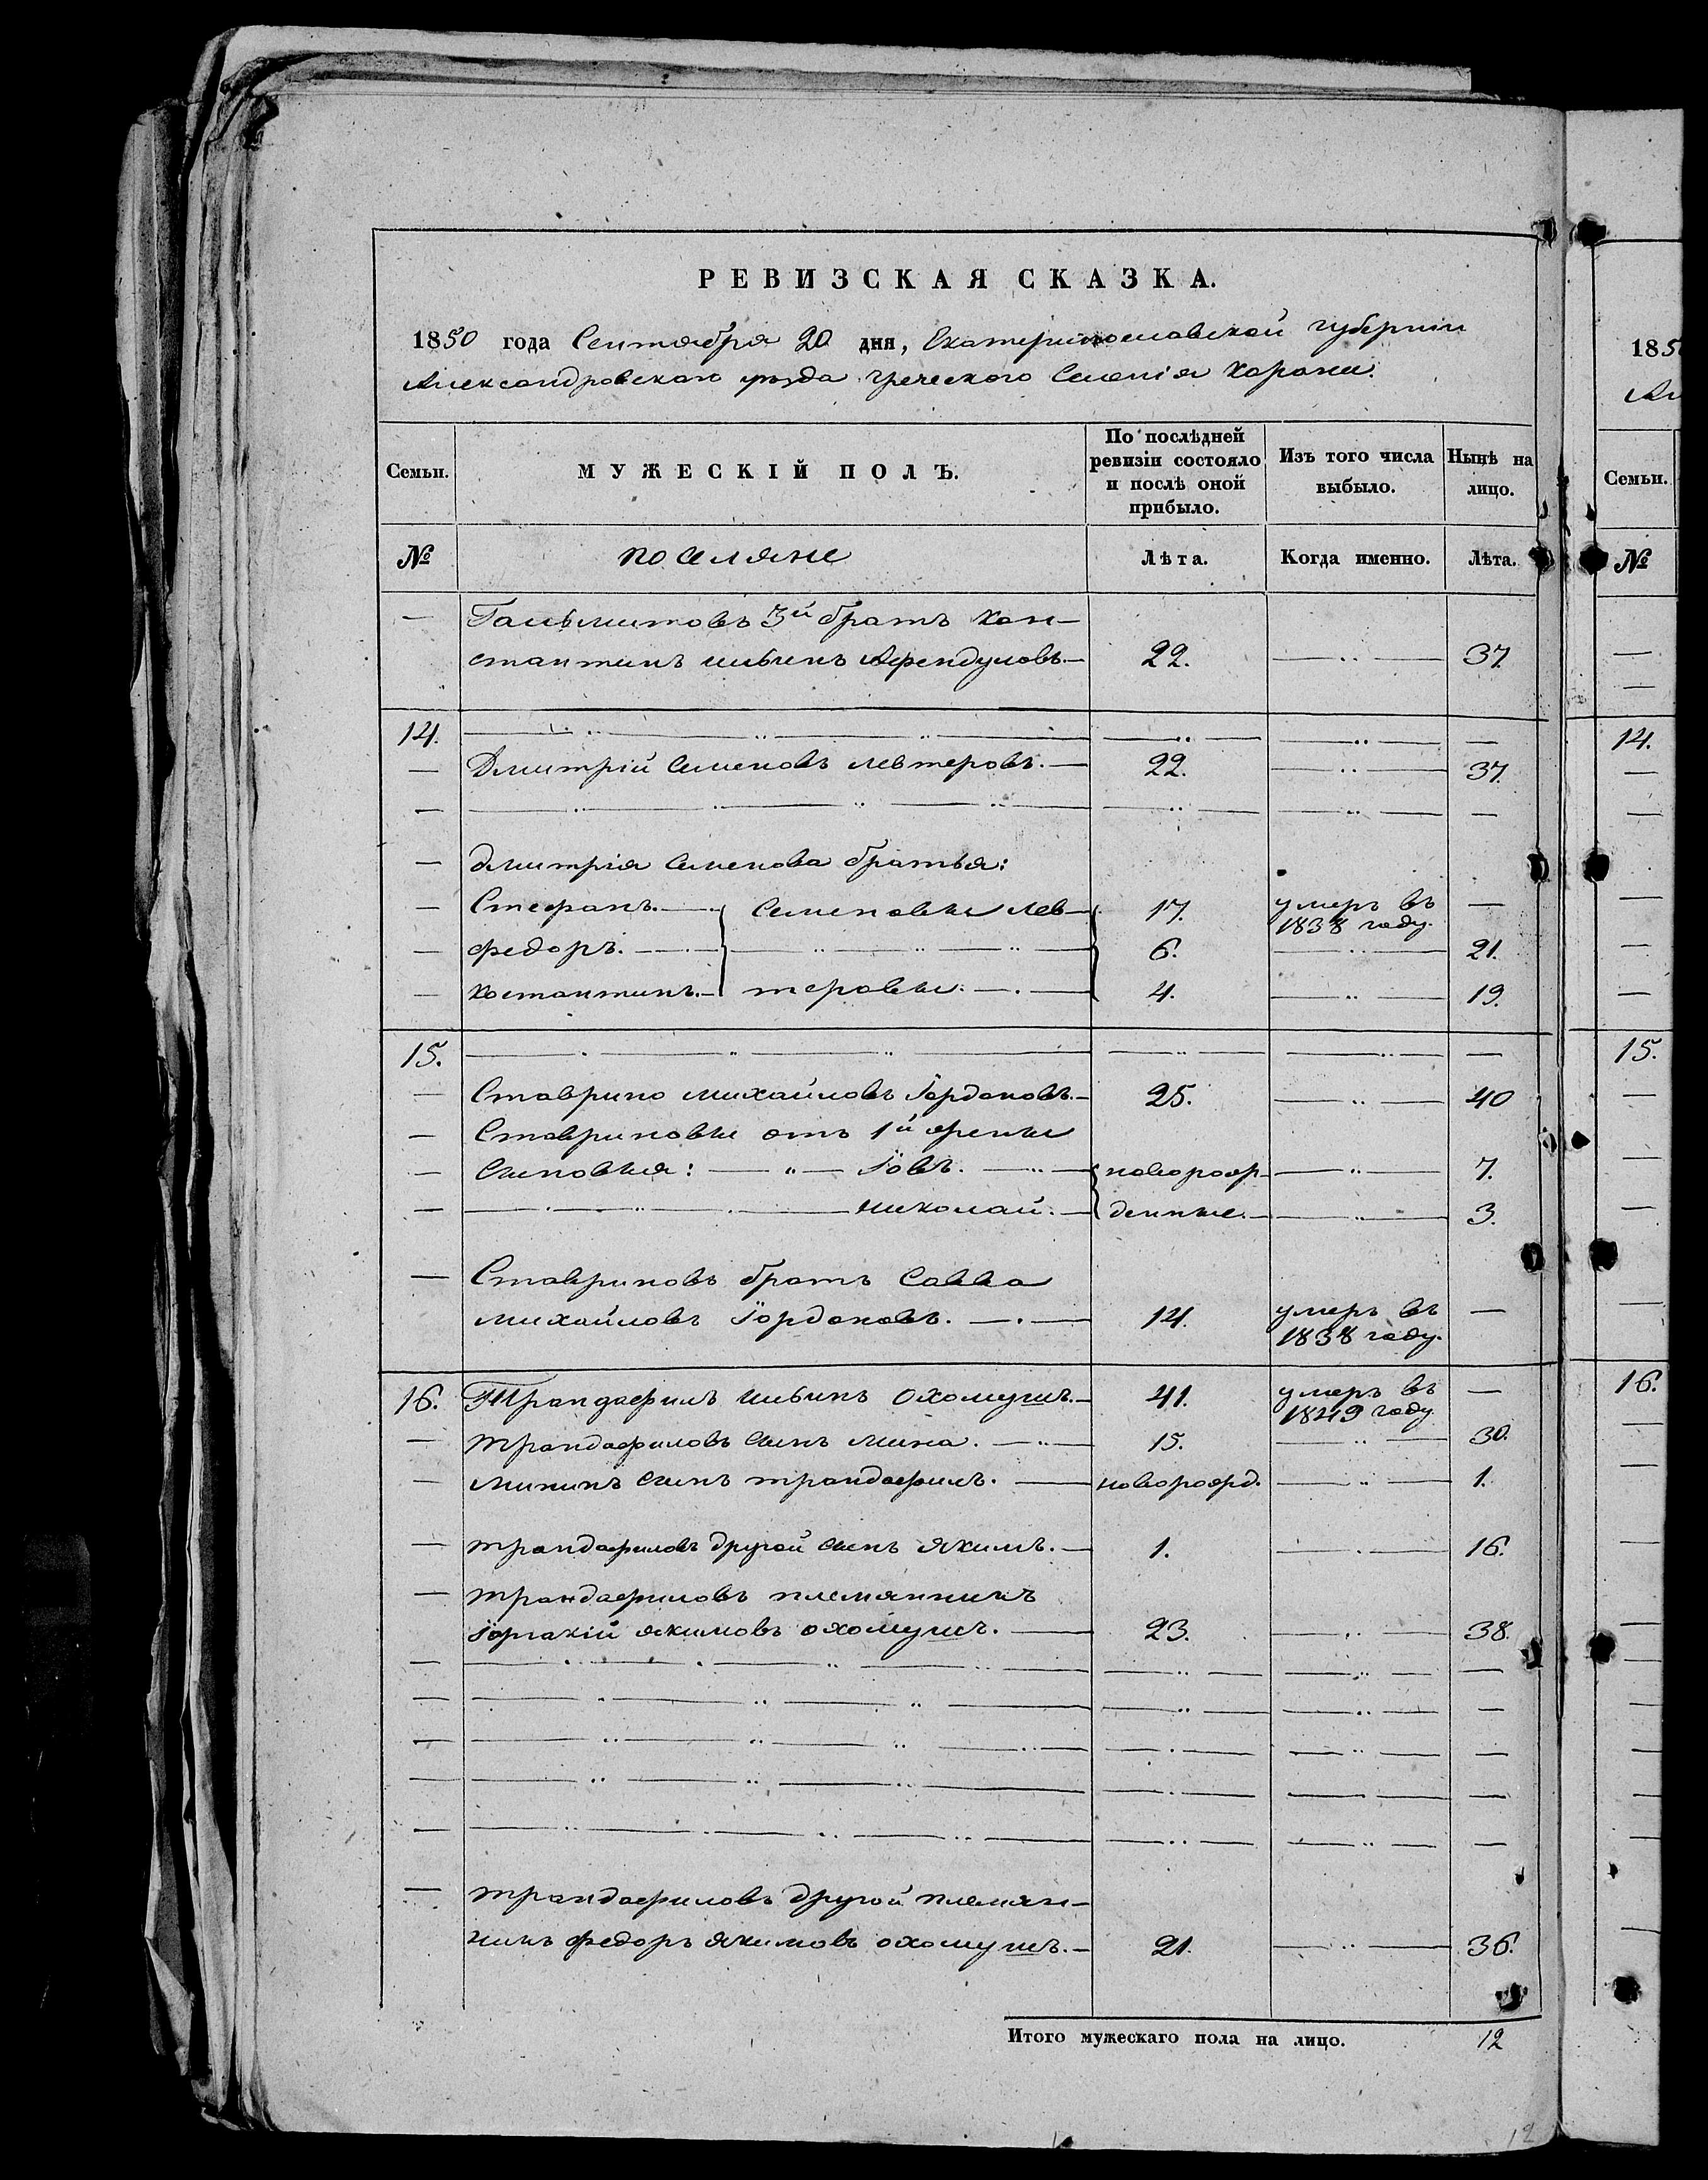 РЕВИЗСКАЯ СКАЗКА.
1850 года Сентября 20 дня, Екатеринославской губерніи
Александровскаго уѣзда греческого Селенія Карани.
Семьи. МУЖЕСКІЙ ПОЛЪ. По послѣдней ревизіи состояло и послѣ оной прибыло. Изъ того числа выбыло. Нынѣ на лицо.
№ поселяне Лѣта. Когда именно. Лѣта.
— 3й братъ Кон-
стантинъ Ильинъ Афендуловъ.— 22. — 37.
14. — — — —
— Дмитрій Семеновъ Левтеровъ.— 22. — 37.
— — — — —
— Дмитрія Семенова братья:
— Стефанъ.— Семеновы Лев- 17. умеръ въ 1838 году. —
— федоръ.— 6. — 21.
— Костантинъ.— теровы.— 4. — 19.
15. — — — —
— Ставрино Михайловъ Іордоновъ.— 25. — 40
— Ставриновы отъ 1й жены
— Сыновья: — Іовъ. — новорож- — 7.
— — Николай.— денные.— — 3.
— Ставриновъ братъ Савва
Михайловъ Іордоновъ.— 14. умеръ въ 1838 году. —
16. Трандафилъ Ильинъ Охомушъ.— 41. умеръ въ 1849 году —
— трандафиловъ сынъ Мина.— 15. — 30.
— Мининъ сынъ трандафилъ.— новорожд. — 1.
— трандафиловъ другой сынъ Якимъ.— 1. — 16.
— трандафиловъ племянникъ
Іоргакій Якимовъ охомушъ.— 23. — 38.
— — — — —
— — — — —
— — — — —
— — — — —
— — — — —
— трандафиловъ другой племян-
никъ федоръ Якимовъ охомушъ.— 21. — 36.
Итого мужескаго пола на лицо. 12
12
185
Ал
Семьи.
№
14.
15.
16.